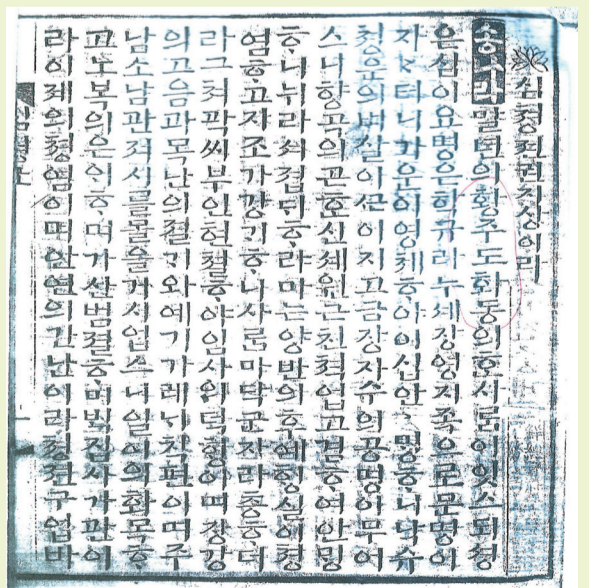 심쳥젼권지상이라
송나라말년의황주도화동의ᄒᆞᆫ사ᄅᆞᆷ이잇스되셩
은심이요명은학규라누셰잠영지족으로문명이
자〻터니가운이영쳬ᄒᆞ야이십안ᄆᆡᆼᄒᆞ니낙슈
쳥운의벼살이ᄭᅳᆫ어지고금장자슈의공명이무어
스니향곡의곤ᄒᆞᆫ신셰원근친쳑업고겸ᄒᆞ여안ᄆᆡᆼ
ᄒᆞ니뉘라셔졉ᄃᆡᄒᆞ랴마는양반의후예ᄒᆡᆼ실이쳥
염ᄒᆞ고지조가강기ᄒᆞ니사ᄅᆞᆷ마닥군자라충ᄒᆞ더
라그쳐곽씨부인현쳘ᄒᆞ야임사의덕ᄒᆡᆼ이며장강
의고음과목난의졀ᄀᆡ와예기가례ᄂᆡ칙편이며주
남소남관져시를몰을거시업스니일이의화목ᄒᆞ
고노복의은인ᄒᆞ며가산범졀ᄒᆞ미ᄇᆡᆨ집사가관이
라이졔의쳥염이며안연의간난이라쳥젼구업바